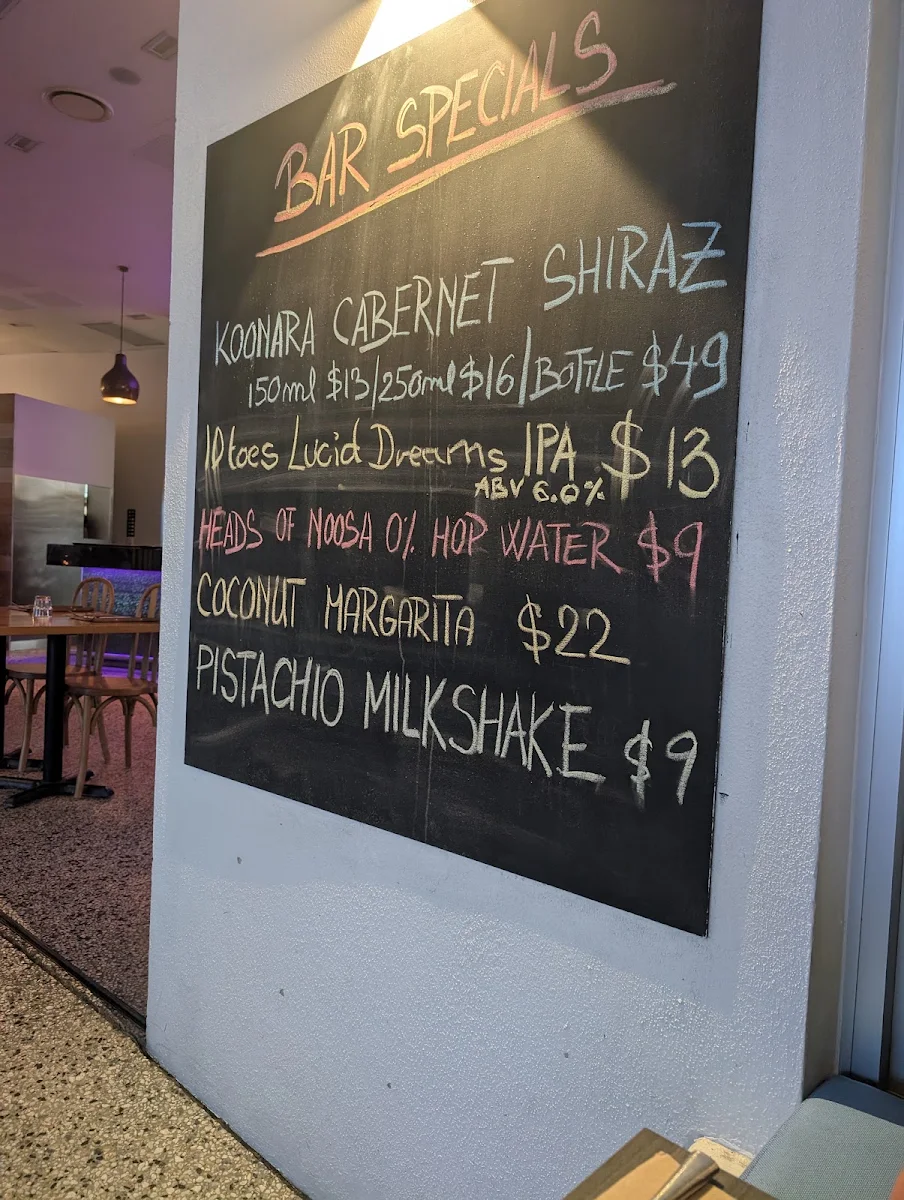 BAR SPECIALS
KOONARA CABERNET SHIRAZ
150ml $13/250ml $16/BOTTLE $49
10toes Lucid Dreams IPA $13
ABV 6.0%
HEADS OF NOOSA 0% HOP WATER $9
COCONUT MARGARITA $22
PISTACHIO MILKSHAKE $9